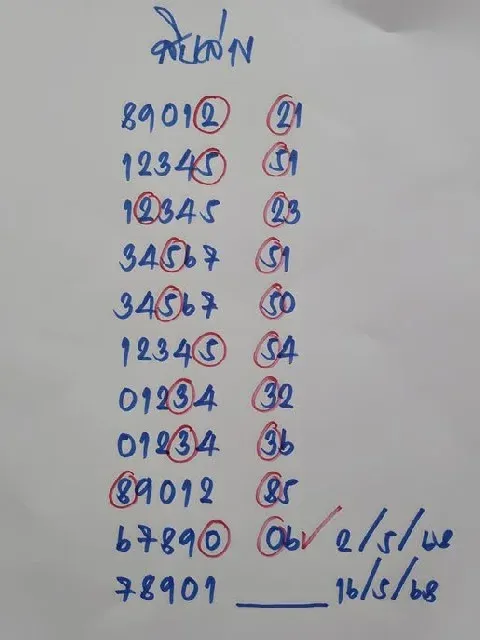 สิบล่าง
89012 21
12345 51
12345 23
34567 51
34567 50
12345 54
01234 32
01234 36
89012 85
67890 06 2/5/68
78901 16/5/68